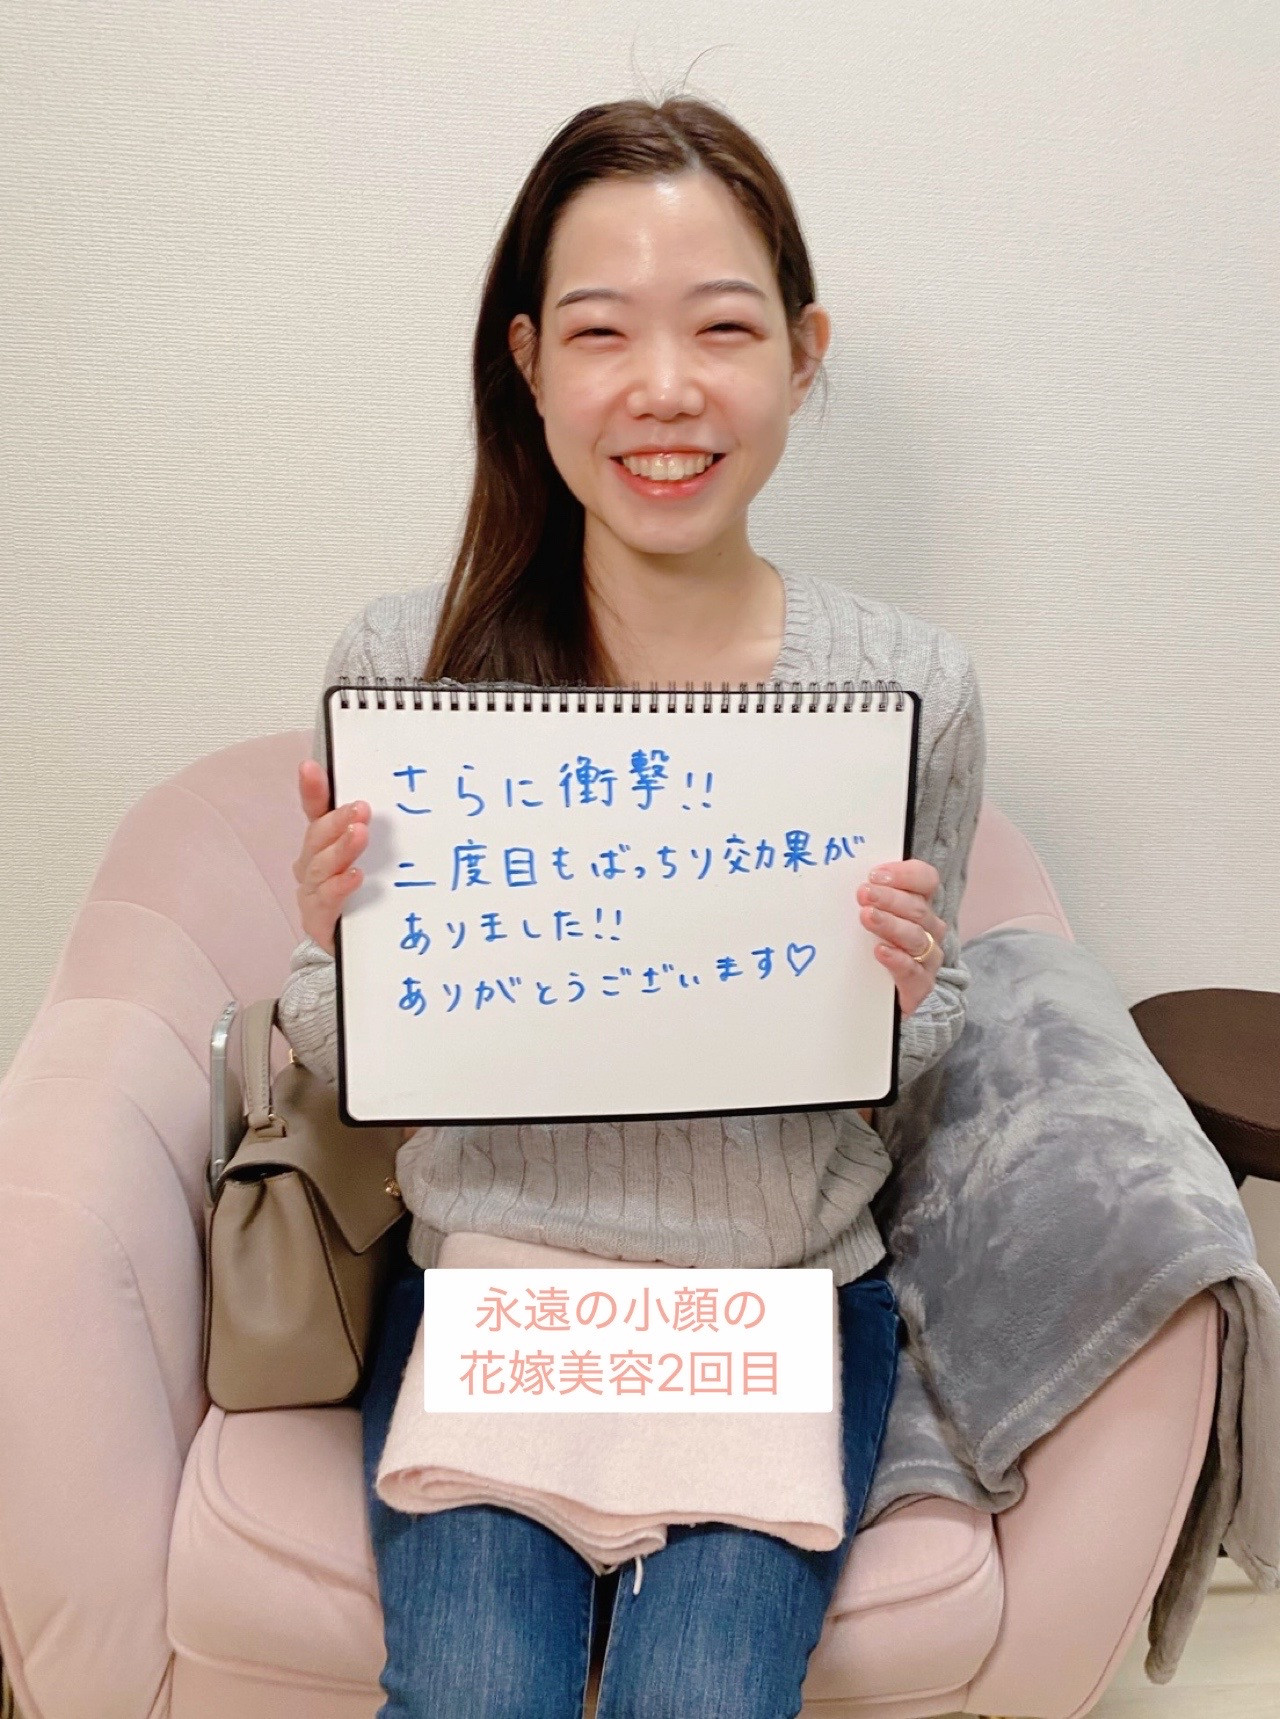 さらに衝撃!!
二度目もばっちり効果が
ありました!!
ありがとうございます♡
永遠の小顔の
花嫁美容2回目